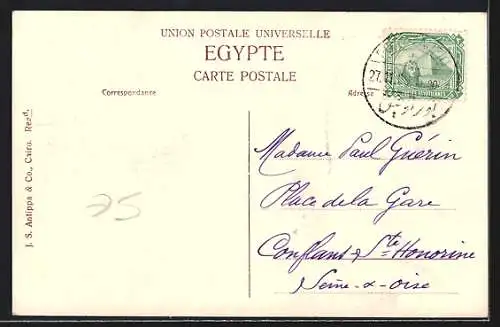 UNION POSTALE UNIVERSELLE
EGYPTE
CARTE POSTALE
Correspondance
Adresse
27.
J. S. Antippa & Co., Cairo.
75
Madame Paul Guérin
Place de la Gare
Conflans-Ste Honorine
Seine-&-Oise